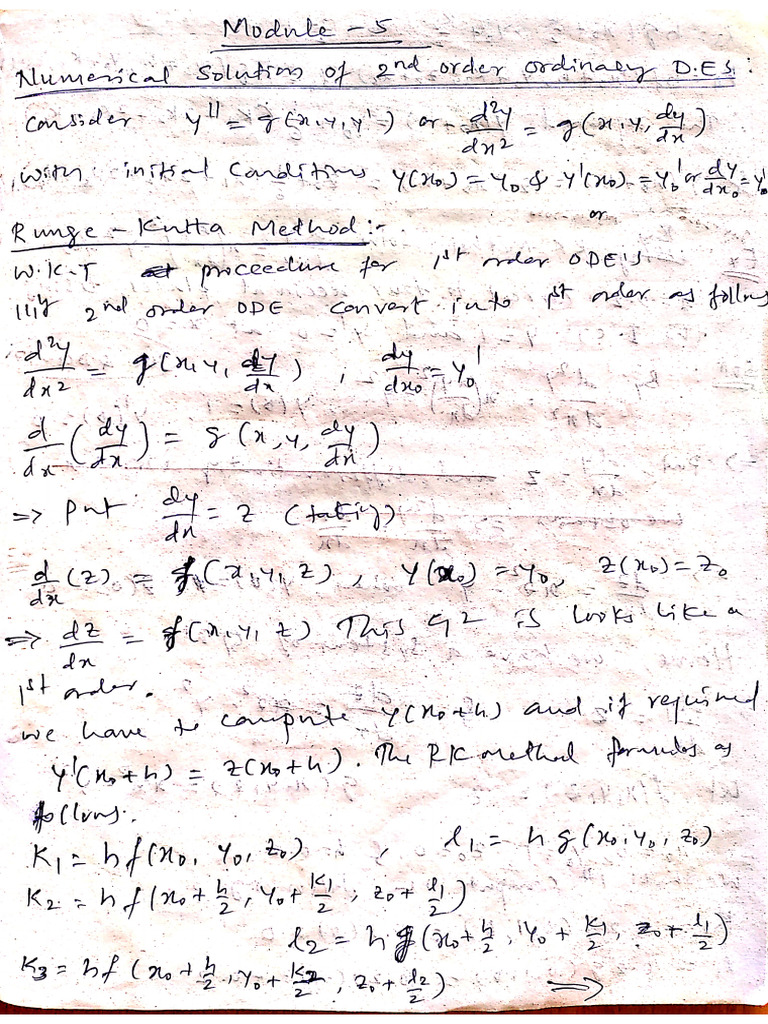 Module - 5
Numerical Solution of 2nd order ordinary D.E.S :
Consider y'' = g(x, y, y') or d²y/dx² = g(x, y, dy/dx)
with initial Conditions y(x₀) = y₀ & y'(x₀) = y₀' or dy/dx₀ = y₀'
or
Runge - Kutta Method :-
W.K.T proceedure for 1st order ODE'S
lllly 2nd order ODE convert into 1st order as follows
d²y/dx² = g(x, y, dy/dx) , dy/dx₀ = y₀'
d/dx (dy/dx) = g(x, y, dy/dx)
=> Put dy/dx = z (taking)
d/dx (z) = f(x, y, z), y(x₀) = y₀, z(x₀) = z₀
=> dz/dx = f(x, y, z) This is looks like a
1st order.
we have to compute y(x₀+h) and if required
y'(x₀+h) = z(x₀+h). The RK method formulas as
follows:.
K₁ = h f(x₀, y₀, z₀) , l₁ = h g(x₀, y₀, z₀)
K₂ = h f(x₀ + h/2, y₀ + K₁/2, z₀ + l₁/2)
l₂ = h g(x₀ + h/2, y₀ + K₁/2, z₀ + l₁/2)
K₃ = h f(x₀ + h/2, y₀ + K₂/2, z₀ + l₂/2) =>